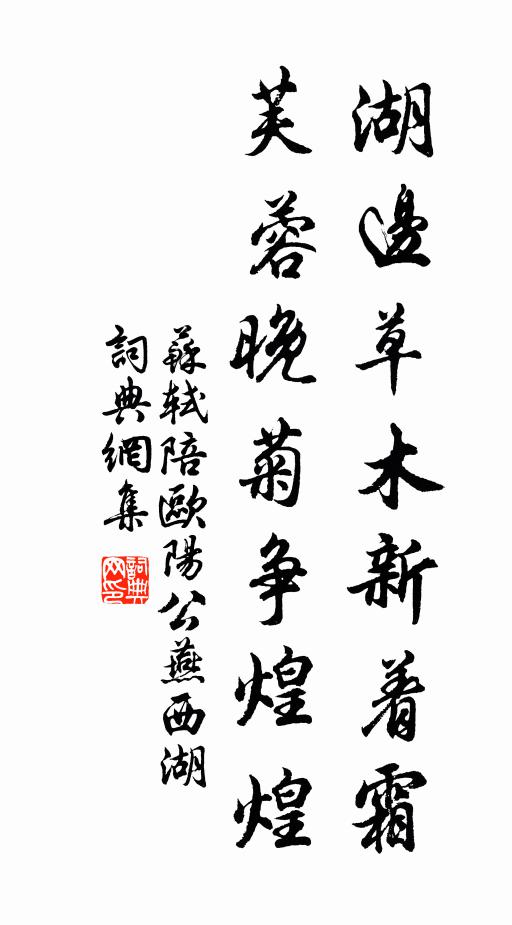 湖邊草木新着霜
芙蓉晚菊争煌煌
蘇軾陪歐陽公燕西湖
詞典網集
詞典网印